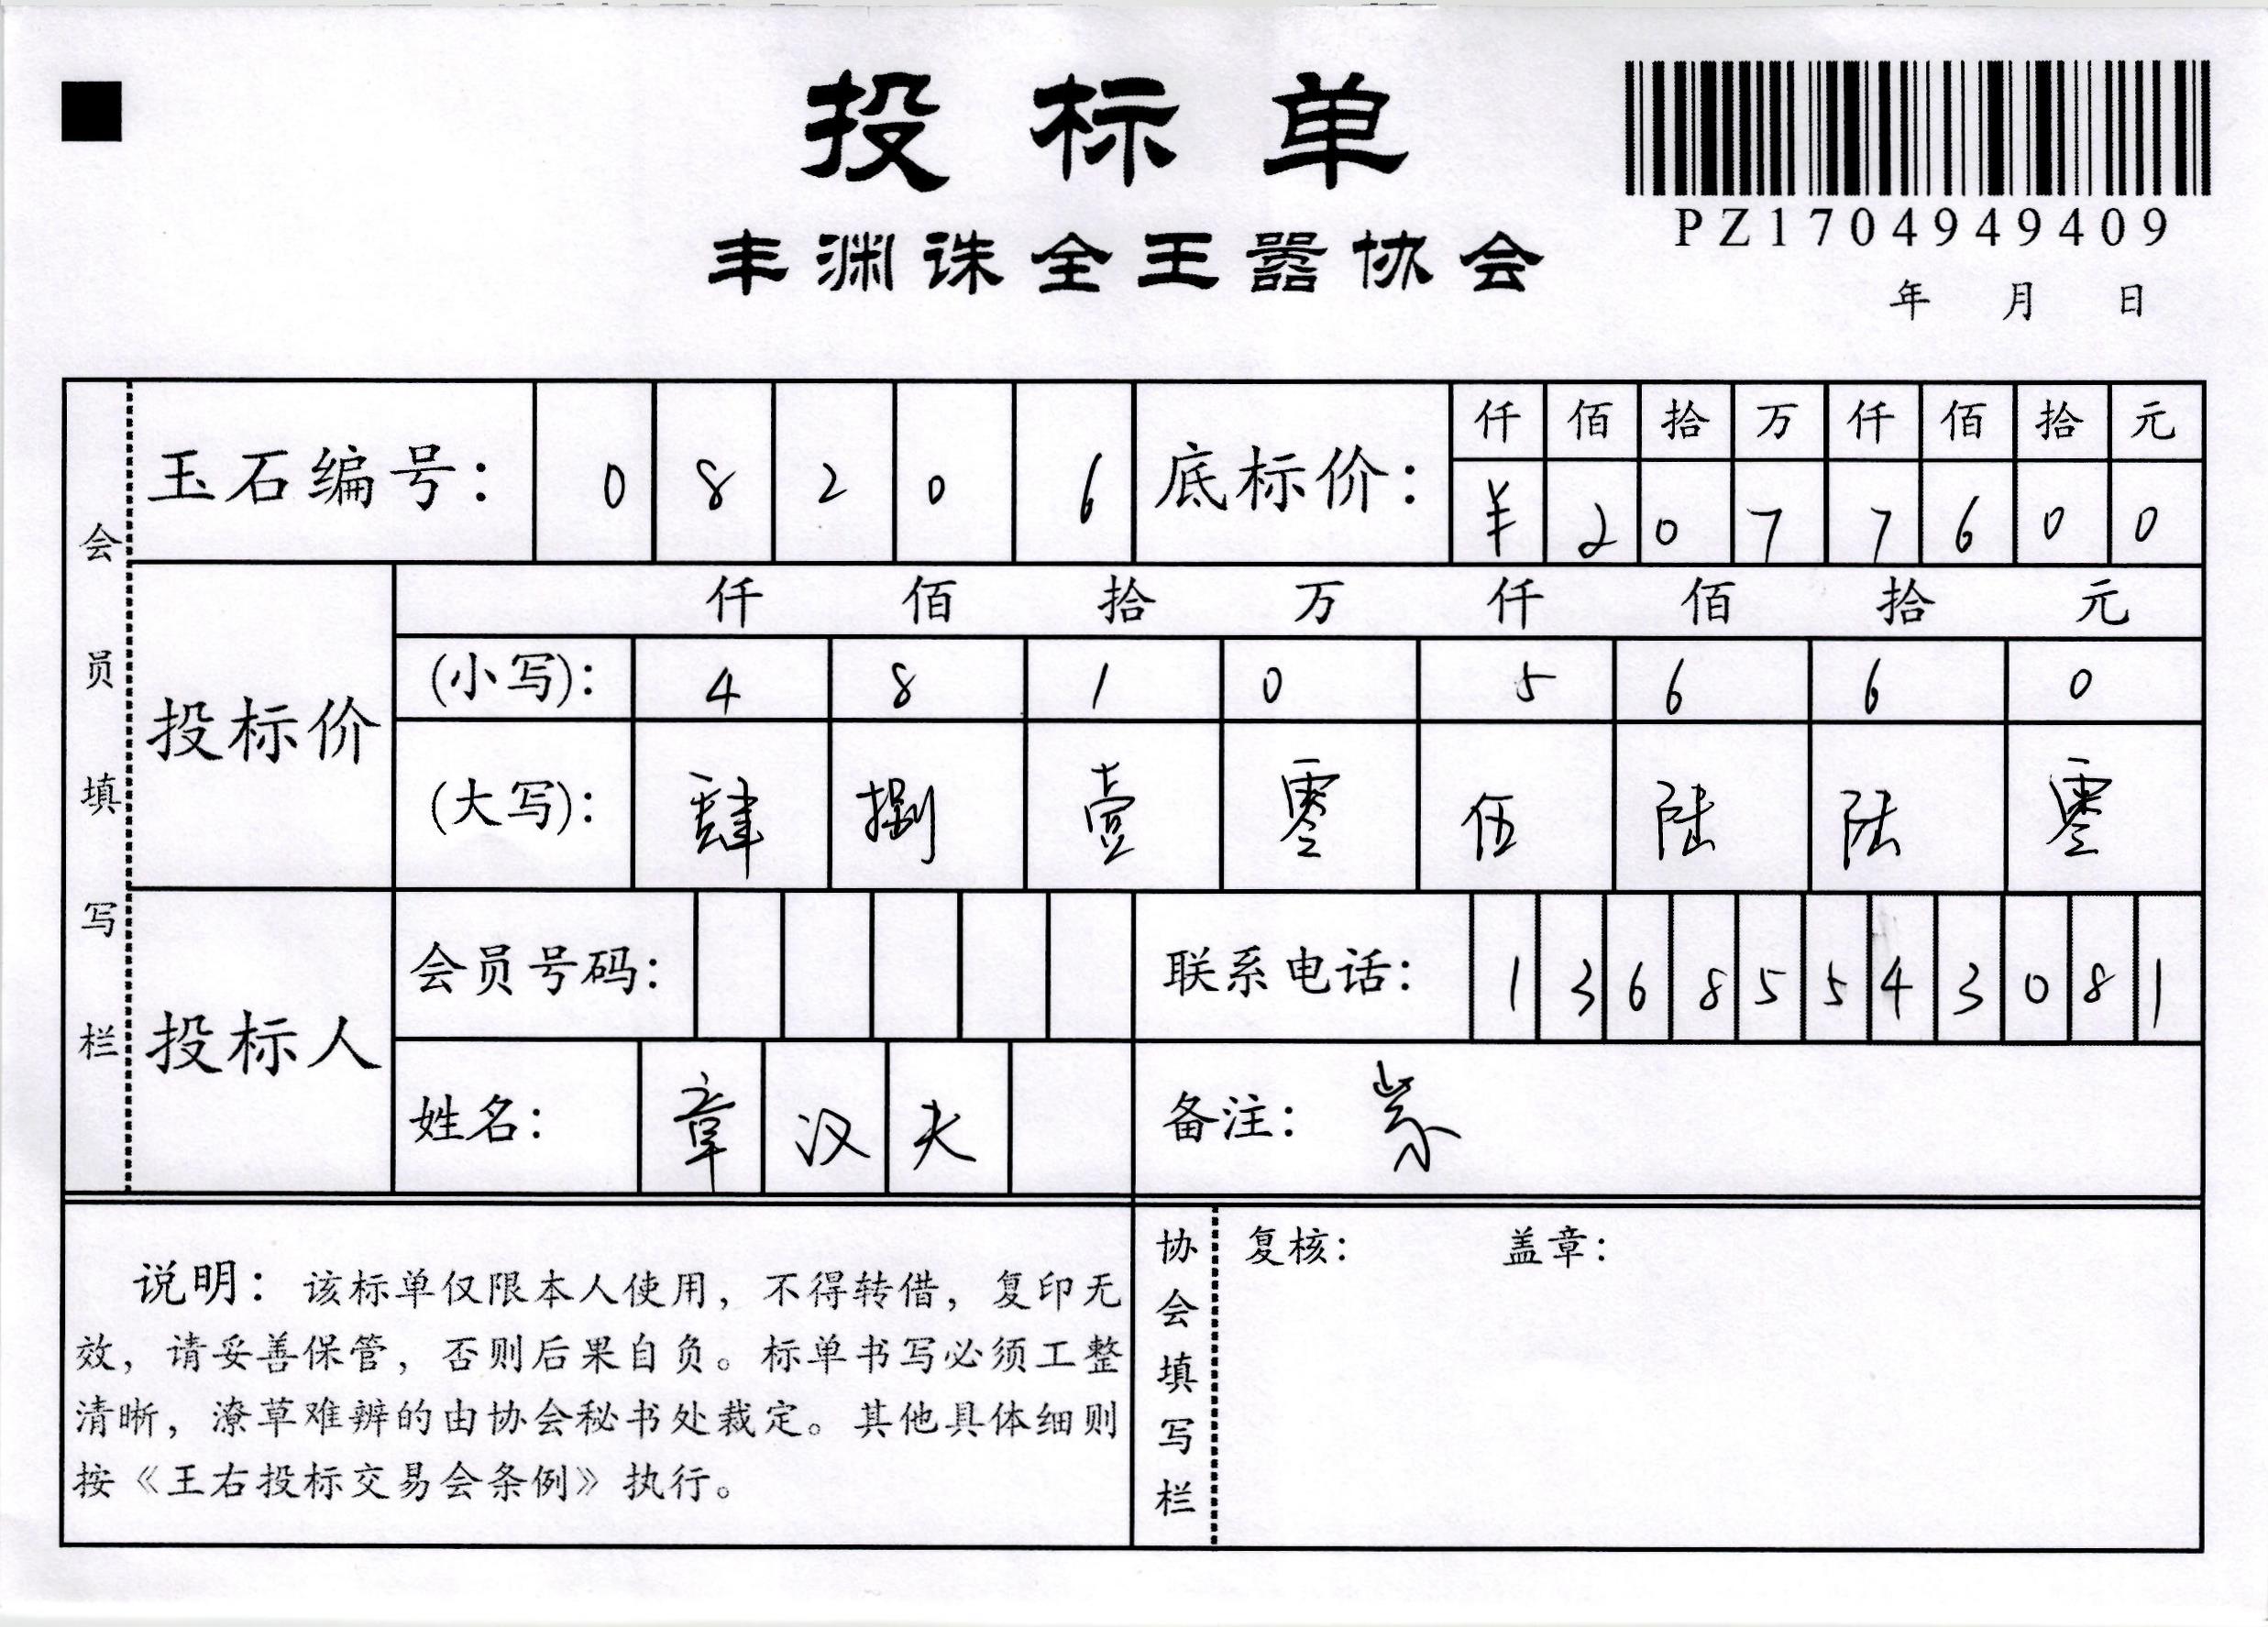 投标单
PZ1704949409
丰渊诛全王嚣协会
年 月 日
会员填写栏
玉石编号： 0 8 2 0 6
底标价： 仟 佰 拾 万 仟 佰 拾 元
¥ 2 0 7 7 6 0 0
投标价
仟 佰 拾 万 仟 佰 拾 元
(小写)： 4 8 1 0 5 6 6 0
(大写)： 肆 捌 壹 零 伍 陆 陆 零
投标人
会员号码：
联系电话： 1 3 6 8 5 5 4 3 0 8 1
姓名： 章 汉 夫
备注：
说明：该标单仅限本人使用，不得转借，复印无
效，请妥善保管，否则后果自负。标单书写必须工整
清晰，潦草难辨的由协会秘书处裁定。其他具体细则
按《王右投标交易会条例》执行。
协会填写栏
复核： 盖章：